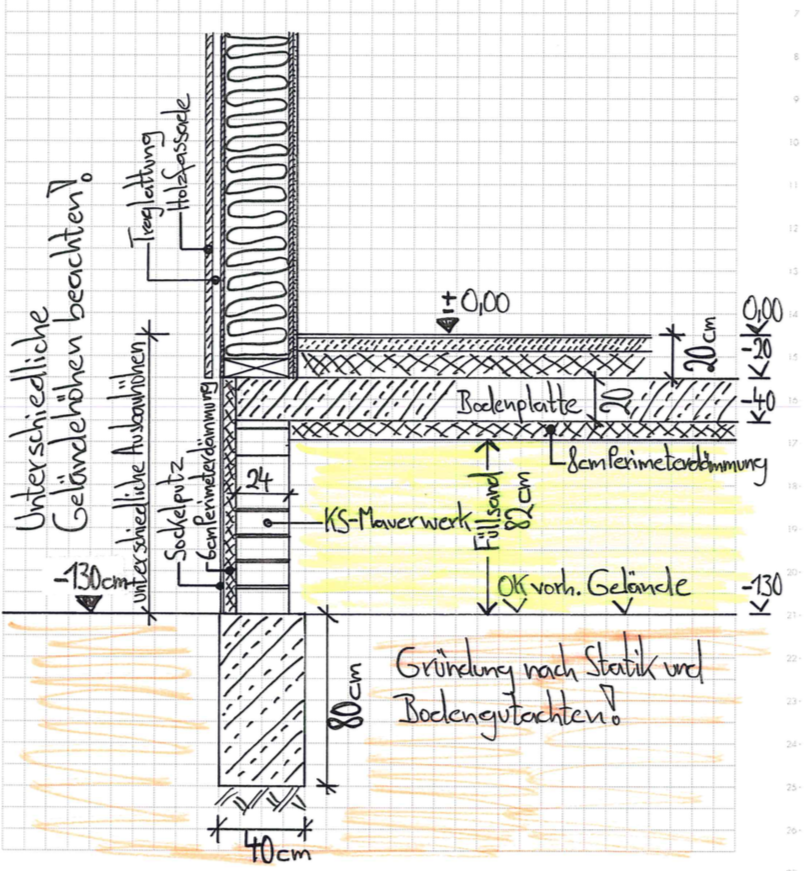 Unterschiedliche
Geländehöhen beachten!
Traglattung
Holzfassade
unterschiedliche Ausbauhöhen
Sockelputz
6cm Perimeterdämmung
-130cm
±0,00
0,00
-20
-40
-130
20cm
Bodenplatte
20
8cm Perimeterdämmung
24
KS-Mauerwerk
Füllsand
82cm
OK vorh. Gelände
80cm
40cm
Gründung nach Statik und
Bodengutachten!
7
8
9
10
11
12
13
14
15
16
17
18
19
20
21
22
23
24
25
26